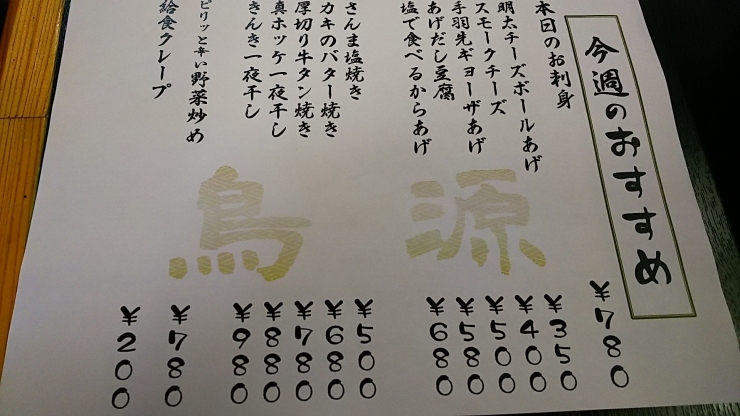 今週のおすすめ
本日のお刺身 ¥780
明太チーズボールあげ ¥350
スモークチーズ ¥400
手羽先ギョーザあげ ¥500
あげだし豆腐 ¥580
塩で食べるからあげ ¥680
さんま塩焼き ¥500
カキのバター焼き ¥680
厚切り牛タン焼き ¥780
真ホッケ一夜干し ¥880
きんき一夜干し ¥980
ピリッと辛い野菜炒め ¥780
給食クレープ ¥200
鳥源